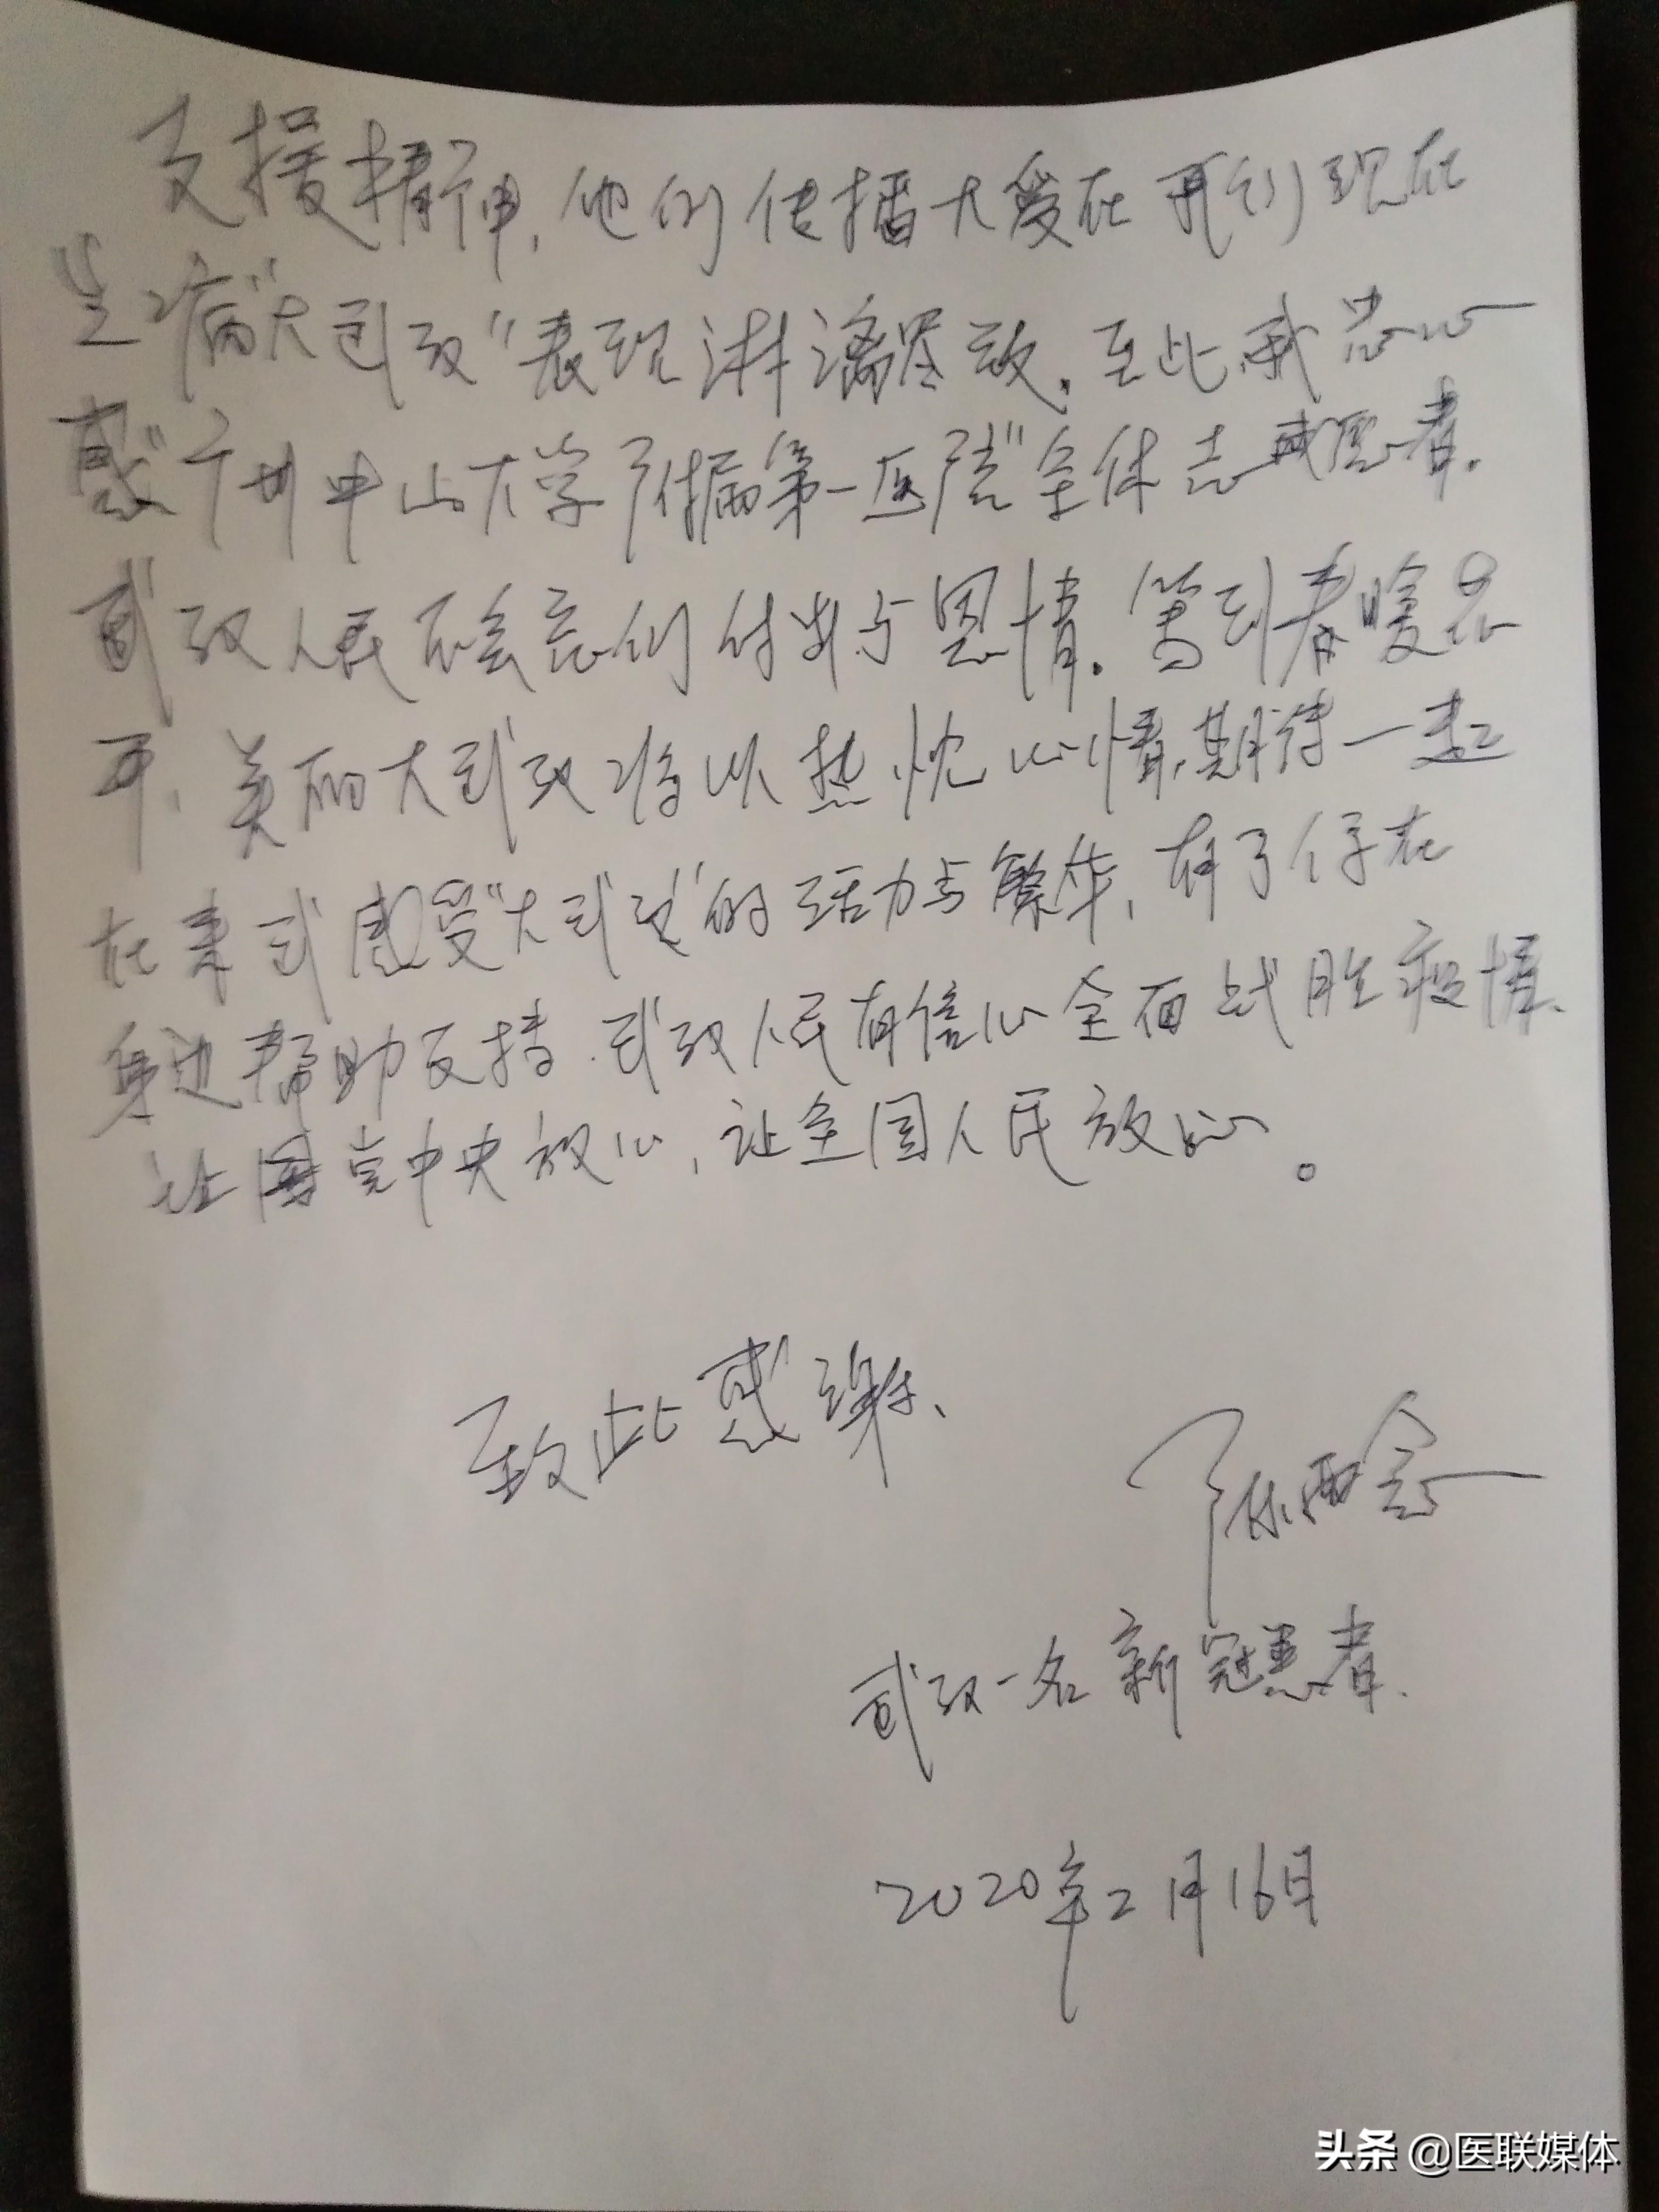 支援精神,他们传播大爱在再次现在
生病"大武汉"表现淋漓尽致.至此我忠心
感"广州中山大学附属第一医院"全体志愿者.
武汉人民不会忘们付出与恩情.等到春暖花
开,美丽大武汉将以热忱心情,期待一起
在来武感受"大武汉"的活力与繁华,有了你在
身边帮助支持.武汉人民有信心全面战胜疫情.
让党中央放心,让全国人民放心。
致此感谢、
陈西
武汉一名新冠患者.
2020年2月16日
头条 @医联媒体